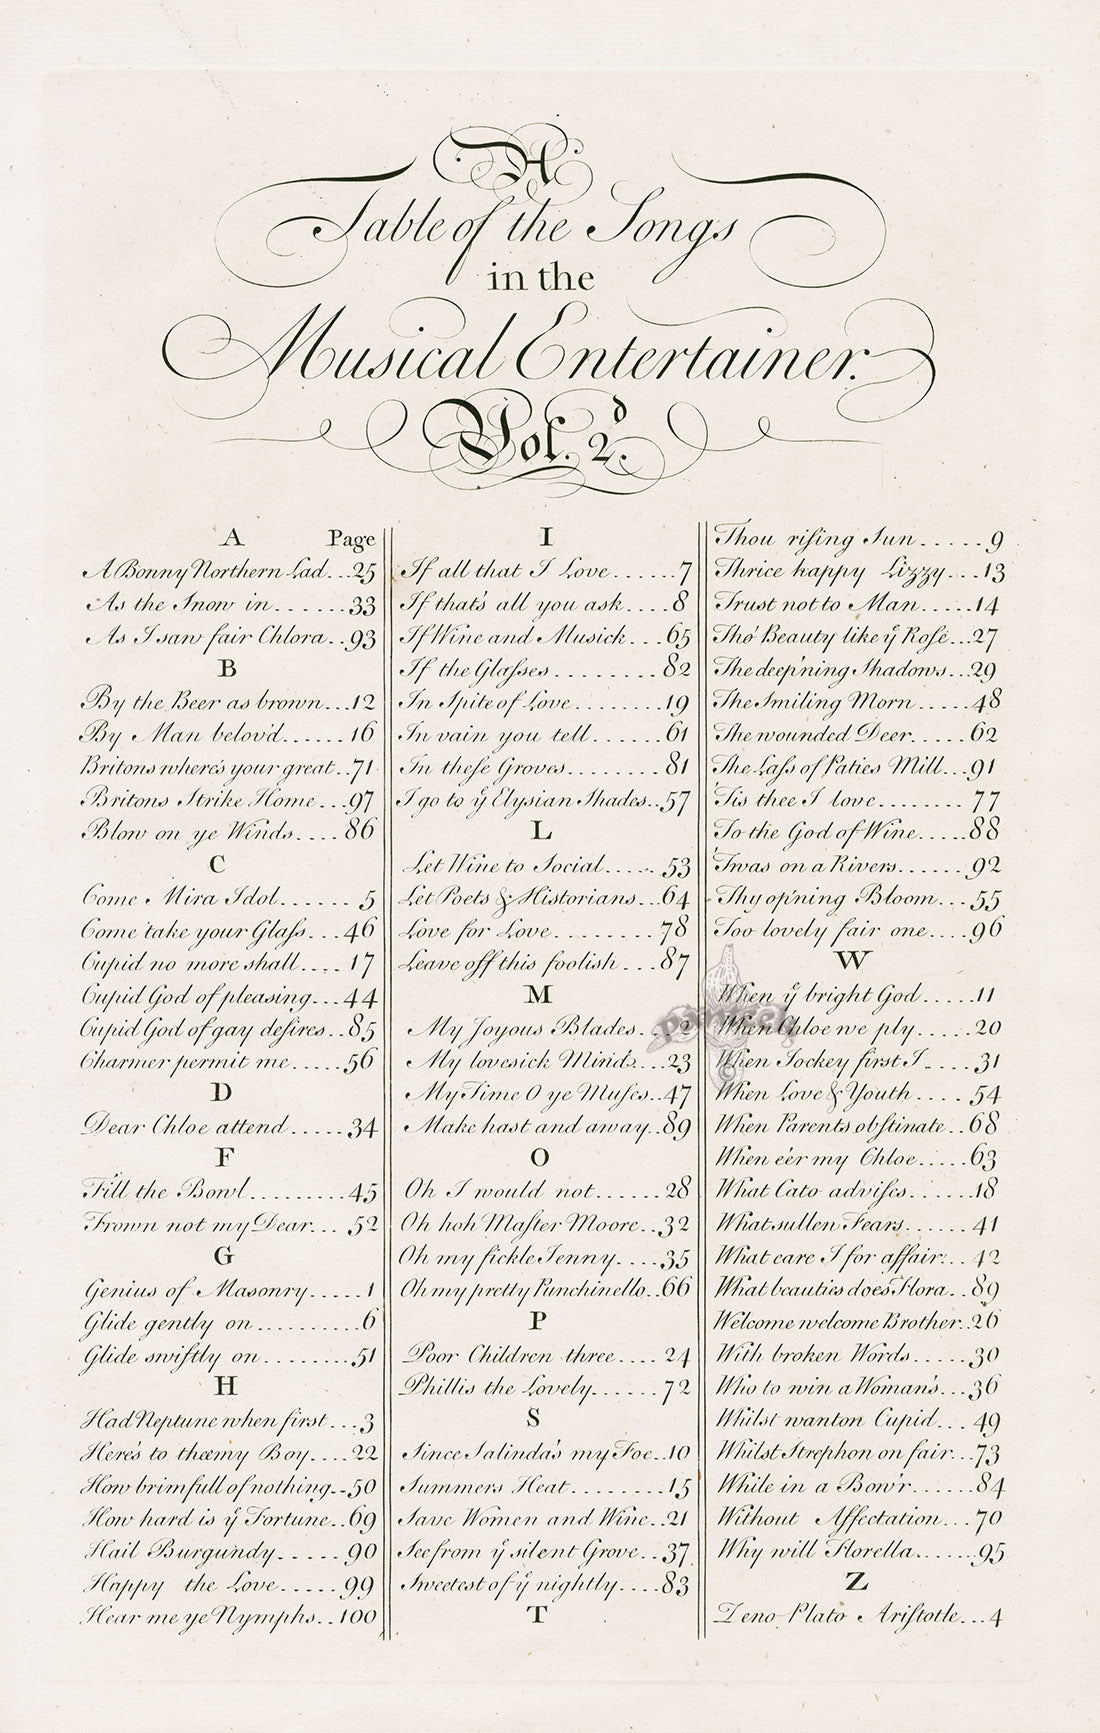 A
Table of the Songs
in the
Musical Entertainer.
Vol. 2.d
A Page
A Bonny Northern Lad...25
As the Snow in.......33
As I saw fair Chlora..93
B
By the Beer as brown...12
By Man belov'd......16
Britons where's your great..71
Britons Strike Home...97
Blow on ye Winds....86
C
Come Mira Idol......5
Come take your Glaſs...46
Cupid no more shall....17
Cupid God of pleasing...44
Cupid God of gay deſires..85
Charmer permit me.....56
D
Dear Chloe attend.....34
F
Fill the Bowl.........45
Frown not my Dear...52
G
Genius of Masonry.....1
Glide gently on.........6
Glide swiftly on........51
H
Had Neptune when first...3
Here's to thee my Boy....22
How brimfull of nothing..50
How hard is ẏe Fortune..69
Hail Burgundy.....90
Happy the Love.....99
Hear me ye Nymphs..100
I
If all that I Love......7
If that's all you ask....8
If Wine and Musick...65
If the Glaſses........82
In Spite of Love.......19
In vain you tell......61
In theſe Groves.......81
I go to ẏe Elysian Shades..57
L
Let Wine to Social.....53
Let Poets & Historians...64
Love for Love........78
Leave off this foolish...87
M
My Joyous Blades...2
My lovesick Mind...23
My Time O ye Muſes..47
Make hast and away..89
O
Oh I would not......28
Oh hoh Maſter Moore..32
Oh my fickle Jenny....35
Oh my pretty Punchinello..66
P
Poor Children three....24
Phillis the Lovely......72
S
Since Salinda's my Foe..10
Summers Heat........15
Save Women and Wine..21
See from ẏe silent Grove..37
Sweetest of ẏe nightly....83
T
Thou riſing Sun.....9
Thrice happy Lizzy...13
Trust not to Man.....14
Tho' Beauty like ẏe Roſe...27
The deep'ning Shadows..29
The Smiling Morn.....48
The wounded Deer.....62
The Laſs of Paties Mill...91
'Tis thee I love........77
To the God of Wine.....88
'Twas on a Rivers......92
Thy op'ning Bloom...55
Too lovely fair one....96
W
When ẏe bright God.....11
When Chloe we ply.....20
When Jockey first I....31
When Love & Youth....54
When Parents obſtinate..68
When e'er my Chloe.....63
What Cato adviſes.....18
What sullen Fears......41
What care I for affair...42
What beauties does Flora..89
Welcome welcome Brother..26
With broken Words.....30
Who to win a Woman's...36
Whilst wanton Cupid...49
Whilst Strephon on fair...73
While in a Bow'r......84
Without Affectation...70
Why will Florella......95
Z
Zeno Plato Ariſtotle...4